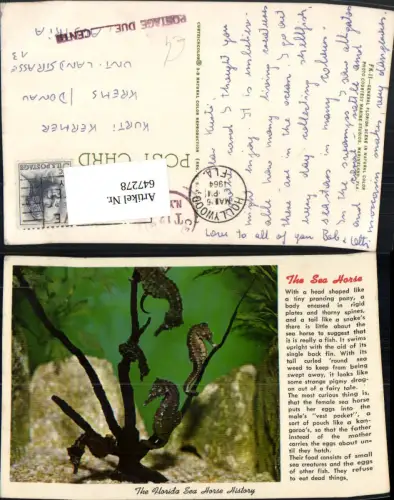 POSTAGE DUE CENTS
POST CARD
KURTI KERMER
KREMS / DONAU
UNT. LANDSTRASSE
13
U.S. POSTAGE
HOLLYWOOD
FLA.
MAR 6
PM
1964
Artikel Nr.
647278
Dear Kurti:
and I thought you
might enjoy. It is unbeliev-
able how many living creatures
there are in the ocean. I go out
every day collecting shellfish,
in many colours.
in the swamps I saw alligators
and coral-, rattle- and
moccasin snakes, very dangerous.
Love to all of you
The Sea Horse
With a head shaped like
a tiny prancing pony, a
body encased in rigid
plates and thorny spines,
and a tail like a snake's
there is little about the
sea horse to suggest that
it is really a fish. It swims
upright with the aid of its
single back fin. With its
tail curled 'round sea
weed to keep from being
swept away, it looks like
some strange pigmy drag-
on out of a fairy tale.
The most curious thing is,
that the female sea horse
puts her eggs into the
male's "vest pocket", a
sort of pouch like a kan-
garoo's, so that the father
instead of the mother
carries the eggs about un-
til they hatch.
Their food consists of small
sea creatures and the eggs
of other fish. They refuse
to eat dead things,
The Florida Sea Horse History